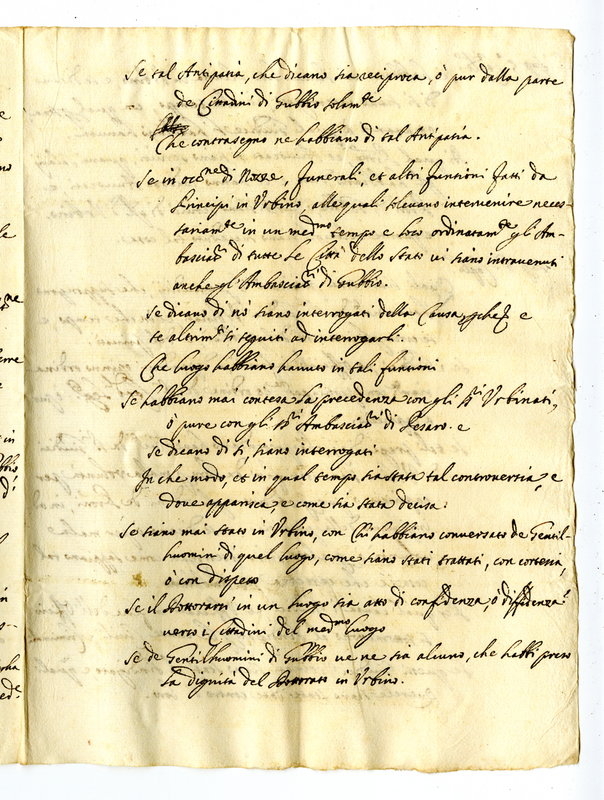 Se tal Antipatia, che dicano sia reciproca, ò pur dalla parte
de Cittadini di Gubbio solam.te
Che contrasegno ne habbiano di tal Antipatia.
Se in occ.ne di Nozze, funerali, et altri funtioni fatti da
Principi in Urbino, alle quali solevano intervenire neces-
sariam.te in un med.mo tempo e loco ordinatam.te gli Am-
basciat.ri di tutte le Città dello Stato vi siano intravenuti
anche gl'Ambasciat.ri di Gubbio.
Se dicano di nò siano interrogati della Causa, e
se altrim.ti si seguiti ad interrogarli.
Che luogo habbiano havuto in tali funtioni
Se habbiano mai contesa la precedenza con gli ss.ri Urbinati,
ò pure con gli ss.ri Ambasciat.ri di Pesaro. e
se dicano di sì, siano interrogati
In che modo, et in qual tempo sia stata tal controversia, e
dove apparisca, e come sia stata decisa.
Se siano mai stato in Urbino, con Chi habbiano conversato de Gentil-
huomin di quel luogo, come siano stati trattati, con cortesia,
ò con dispetto
Se il Dottorarsi in un luogo sia atto di confidenza, ò diffidenza
verso i Cittadini del med.mo luogo
Se de Gentilhuomini di Gubbio ve ne sia alcuno, che habbi preso
la dignità del Dottorato in Urbino.